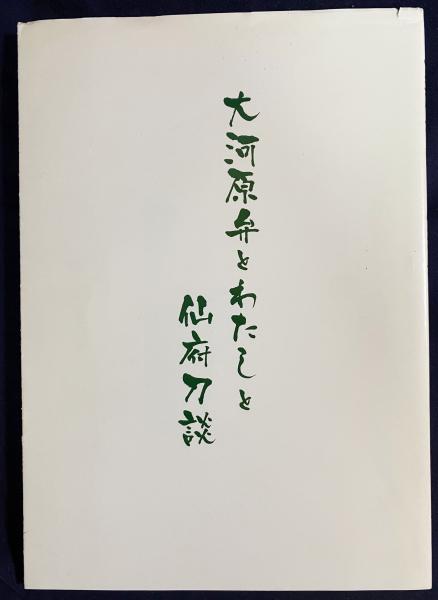 大河原弁とわたしと
仙府刀談